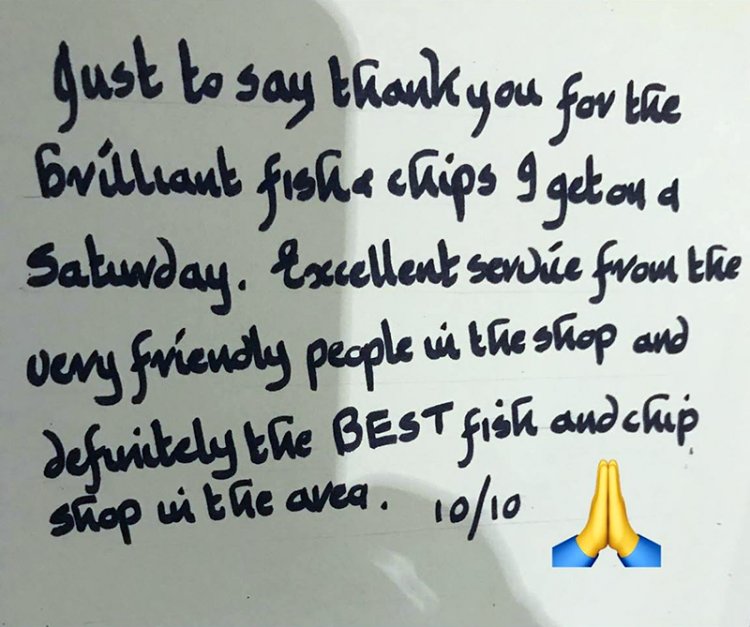 Just to say thank you for the
brilliant fish & chips I get on a
Saturday. Excellent service from the
very friendly people in the shop and
definitely the BEST fish and chip
shop in the area. 10/10 🙏